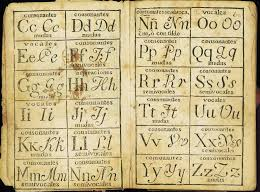 consonantes consonantes
Cc Cc Dd Dd
mudas mudas
vocales consonantes
Ee Ee Ff Ff
semivocales
Gg Gg Hh Hh
mudas
vocales consonantes
Ii Ii Jj Jj
semivocales
consonantes consonantes
Kk Kk Ll Ll
mudas semivocales
consonantes consonantes
Mm Mm Nn Nn
semivocales semivocales
vocales
Ññ Ññ Oo Oo
consonantes consonantes
Pp Pp Qq Qq
mudas mudas
consonantes consonantes
Rr Rr Ss Ss
semivocales semivocales
consonantes vocales
Tt Tt Uu Uu
mudas
consonantes consonantes
Vv Vv Xx Xx
consonantes consonantes
Yy Yy Zz Zz
semivocales